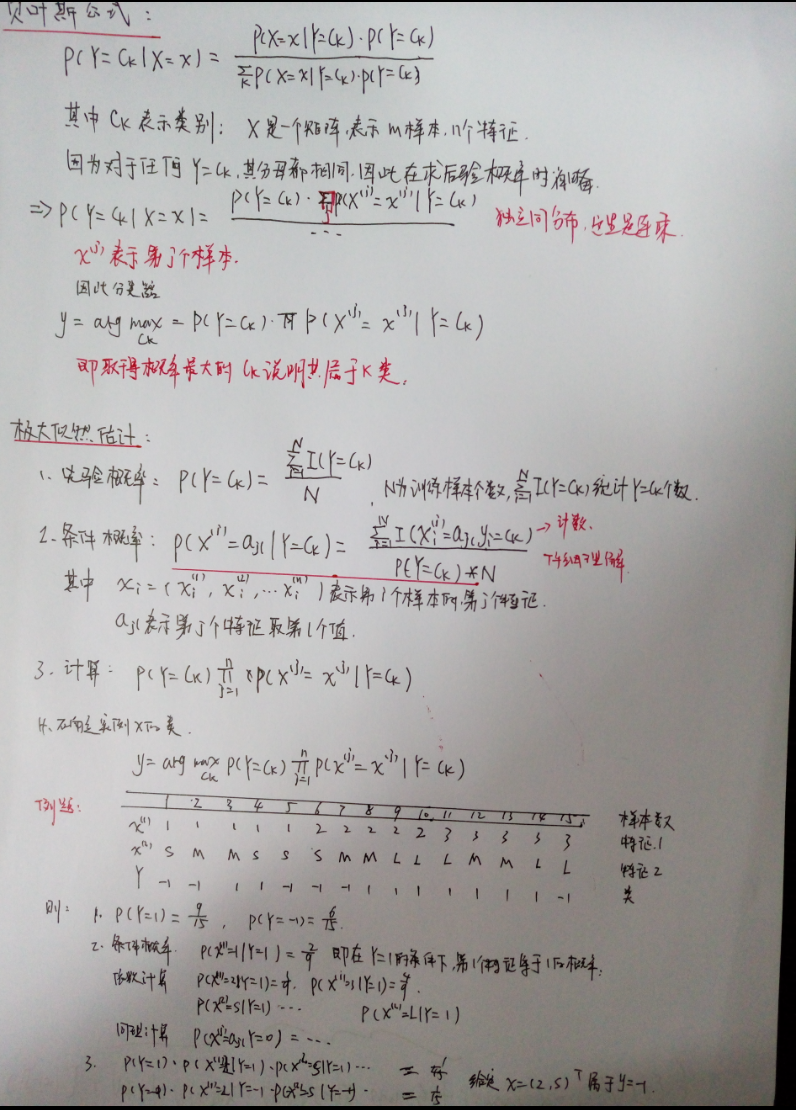 贝叶斯公式:
P(Y=Ck|X=x) = P(X=x|Y=Ck)·P(Y=Ck) / Σk P(X=x|Y=Ck)·P(Y=Ck)
其中 Ck 表示类别; X 是一个矩阵,表示 m样本,n个特征.
因为对于任何 Y=Ck,其分母都相同.因此在求后验概率时省略
=> P(Y=Ck|X=x) = P(Y=Ck)· P(X^(j)=x^(j)|Y=Ck) / ... 独立同分布,这里是连乘.
x^(j) 表示第j个样本.
因此分类器
y = arg max Ck = P(Y=Ck)·π P(X^(j)=x^(j)|Y=Ck)
即取得概率最大的 Ck 说明其属于K类.
极大似然估计:
1. 先验概率: P(Y=Ck) = Σ(i=1..N) I(Y=Ck) / N , N为训练样本个数, Σ(i=1..N) I(Y=Ck) 统计 Y=Ck个数.
2. 条件概率: P(X^(j)=ajl|Y=Ck) = Σ(i=1..N) I(Xi^(j)=ajl,yi=Ck) / P(Y=Ck)*N → 计数.
其中 xi=(xi^(1), xi^(2), ... xi^(n)) 表示第i个样本的第j个特征.
ajl 表示第j个特征取第l个值.
3. 计算: P(Y=Ck) Π(j=1..n) P(X^(j)=x^(j)|Y=Ck)
4. 确定实例X的类.
y = arg max Ck P(Y=Ck) Π(j=1..n) P(X^(j)=x^(j)|Y=Ck)
例题: 1 2 3 4 5 6 7 8 9 10 11 12 13 14 15 样本数
x^(1) 1 1 1 1 1 2 2 2 2 2 3 3 3 3 3 特征1
x^(2) S M M S S S M M L L L M M L L 特征2
Y -1 -1 1 1 -1 -1 -1 1 1 1 1 1 1 1 -1 类
则: 1. P(Y=1) = 9/15 , P(Y=-1) = 6/15.
2. 条件概率. P(X^(1)=1|Y=1) = 2/9 即在 Y=1的条件下,第1个特征等于1的概率.
依次计算 P(X^(1)=2|Y=1) = , P(X^(1)=3|Y=1) = .
P(X^(2)=S|Y=1) ... P(X^(2)=L|Y=1)
同理计算 P(X^(j)=ajl|Y=0) = ...
3. P(Y=1)·P(X^(1)=2|Y=1)·P(X^(2)=S|Y=1) ... =
P(Y=-1)·P(X^(1)=2|Y=-1)·P(X^(2)=S|Y=-1)· = 1/15 给定 X=(2,S)^T 属于 y=-1.